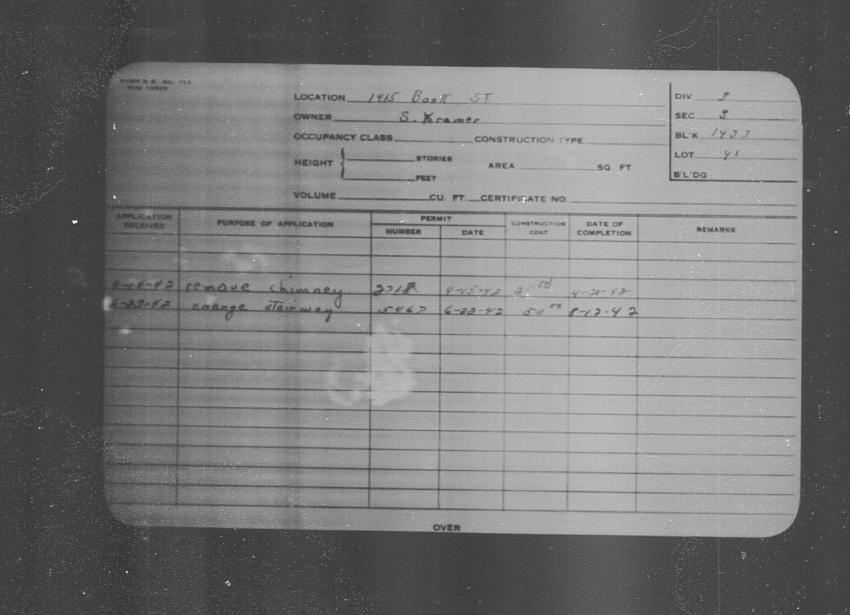 LOCATION 1415 Bact ST.
OWNER S. Kramer
OCCUPANCY CLASS CONSTRUCTION TYPE
HEIGHT { STORIES AREA SQ. FT.
FEET
VOLUME CU. FT. CERTIFICATE NO.
DIV 3
SEC 3
BL'K 1433
LOT 41
B'L'DG
APPLICATION RECEIVED PURPOSE OF APPLICATION PERMIT NUMBER DATE CONSTRUCTION COST DATE OF COMPLETION REMARKS
4-14-42 remove chimney 2718 4-15-42
6-22-42 change stairway 5467 6-22-42 50 00 8-12-42
OVER